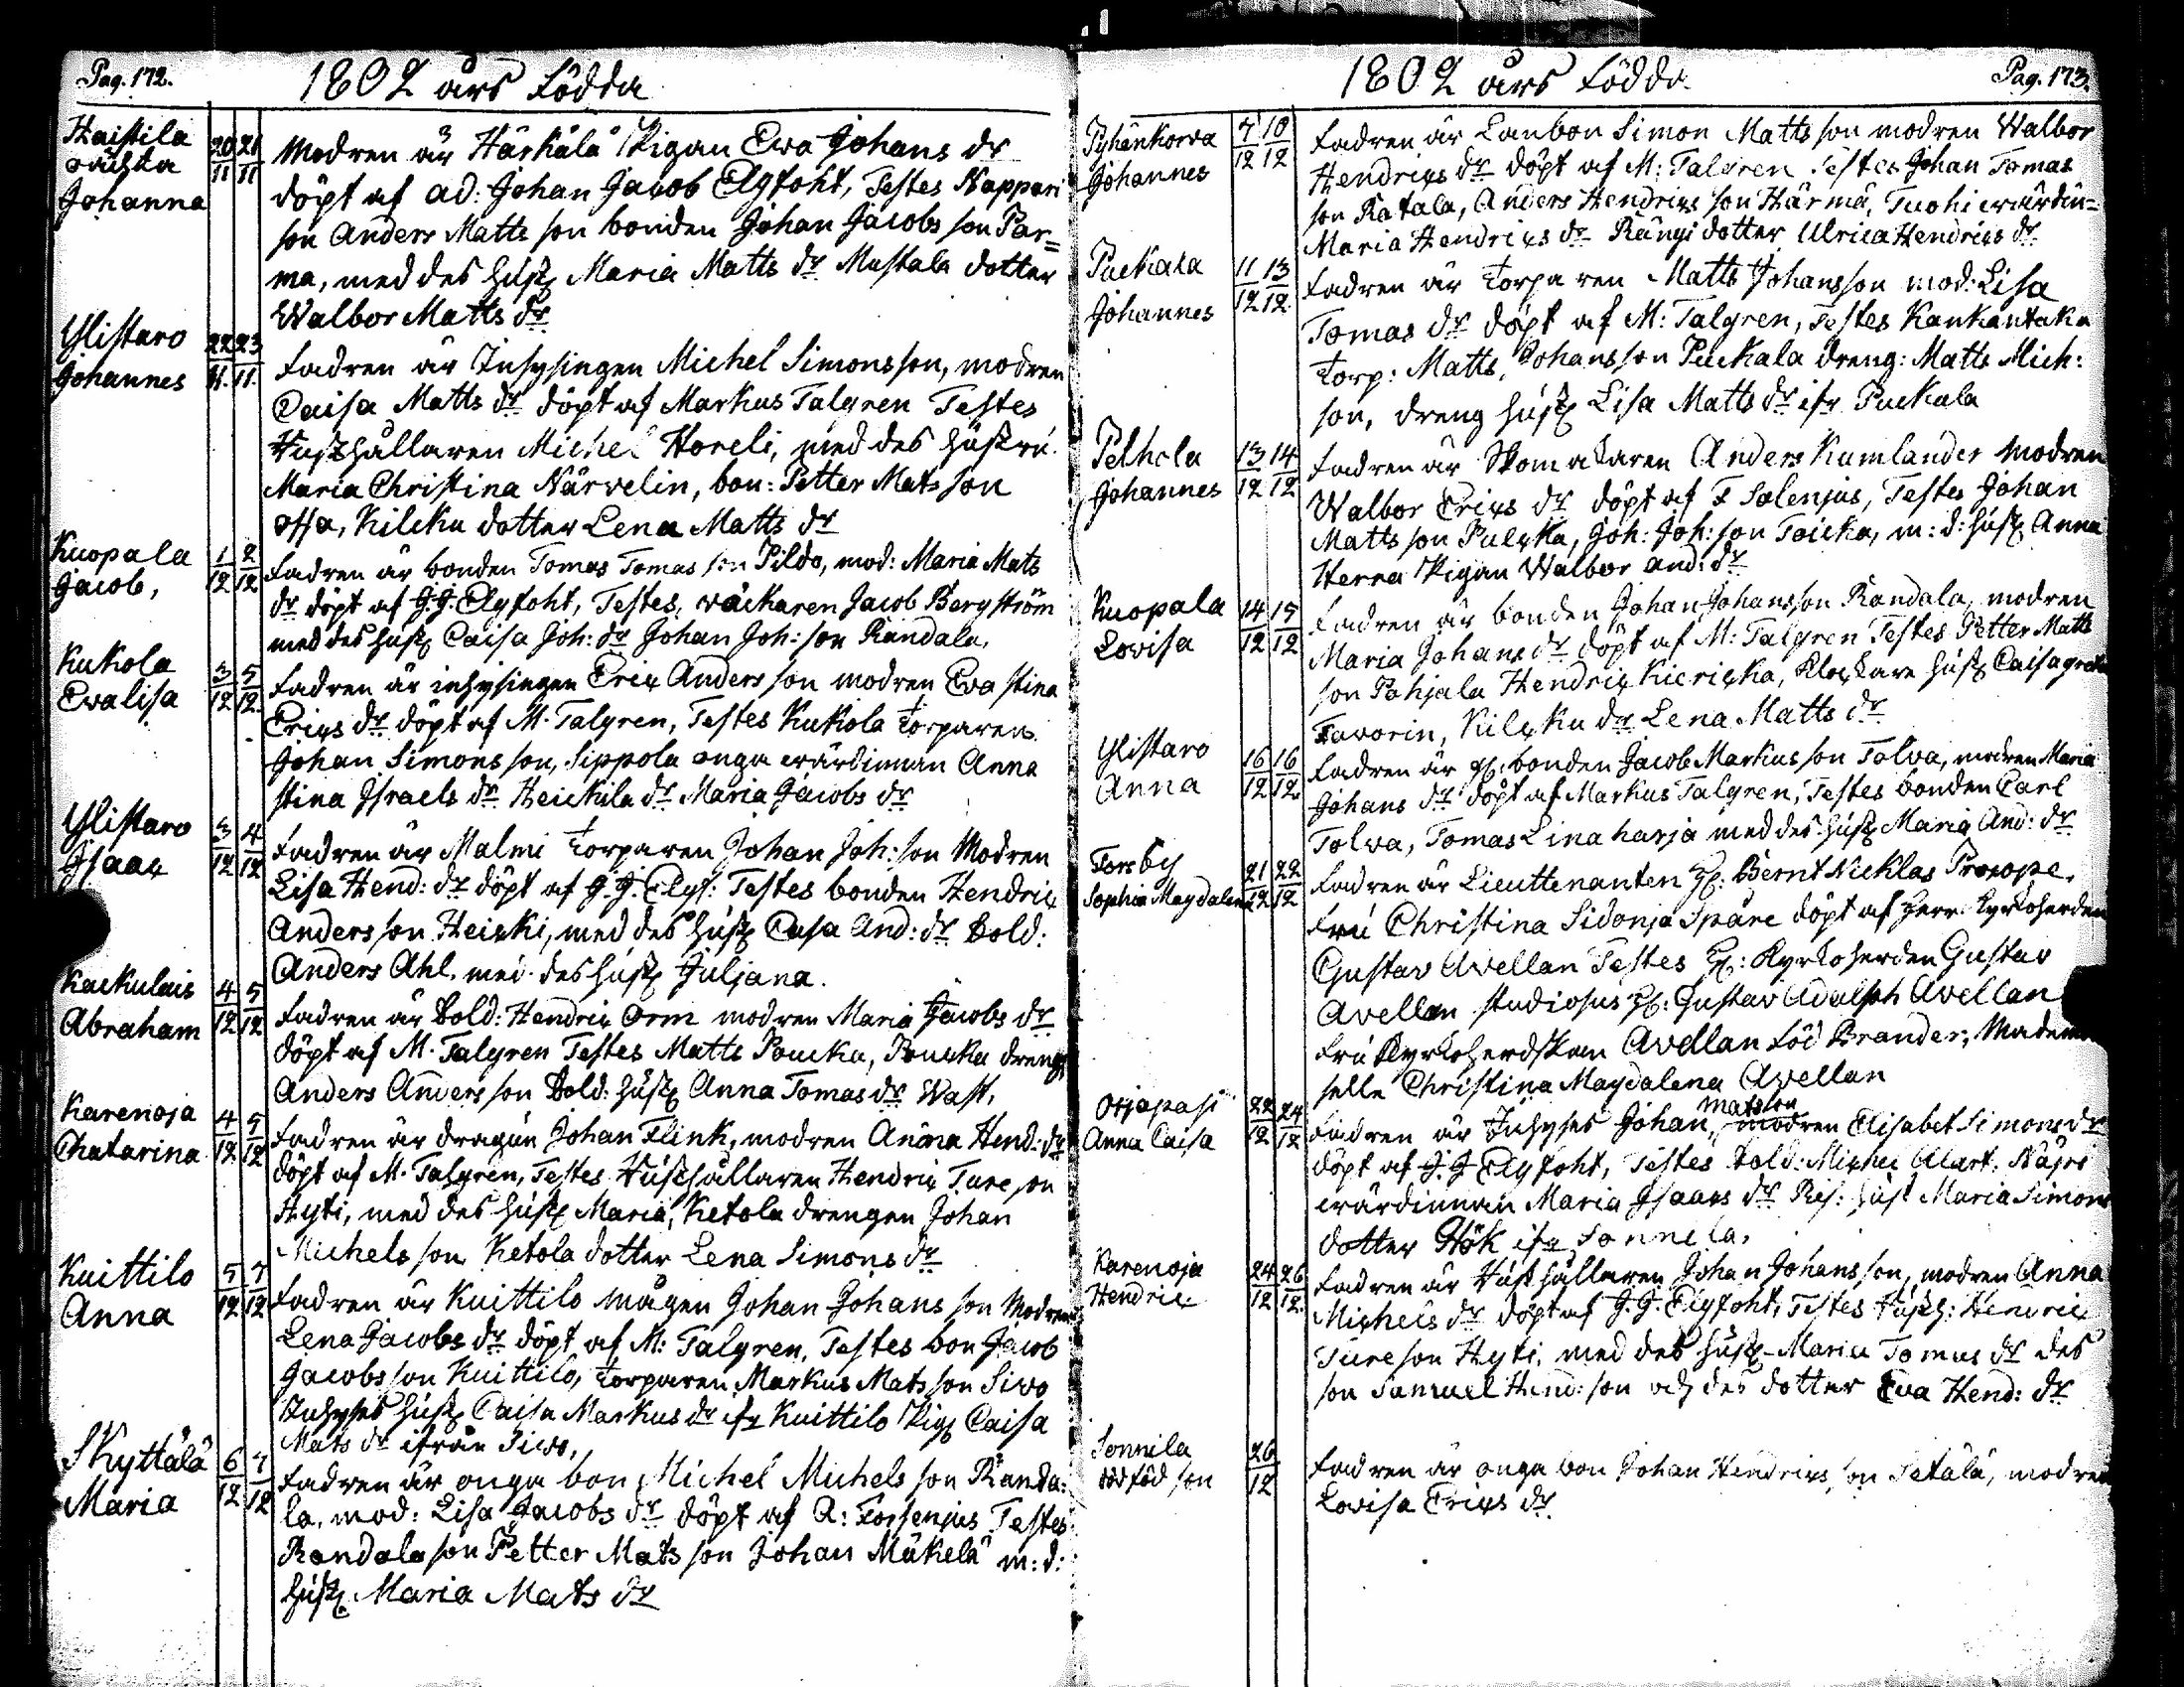 Pag. 172.
1802 års födda
Haistila
Johanna
20/11 21/11
Modren är Härkälä Pigan Ewa Johans dr
döpt af ad: Johan Jacob Elgfoht, Testes Nappari
son Anders Matts son bonden Johan Jacobs son Par=
ma, med des hust: Maria Matts dr Mustala dotter
Walbor Matts dr
Ylistaro
Johannes
22/11. 23/11.
fadren är Inhysingen Michel Simonsson, modren
Caisa Matts dr döpt af Markus Talgren Testes
Hushållaren Michel Horeli, med des hustru
Maria Christina Närvelin, bon: Petter Mats son
Kilcku dotter Lena Matts dr
Kuopala
Jacob,
1/12 2/12
fadren är bonden Tomas Tomas son Pildo, mod: Maria Mats
dr döpt af J.J. Elgfoht, Testes, väckaren Jacob Bergström
med des hust: Caisa Joh: dr Johan Joh: son Randala,
Kukola
Ewalisa
3/12 5/12.
fadren är inhysingen Eric Anders son modren Eva stina
Erics dr döpt af M. Talgren, Testes Kukola torparen
Johan Simons son, Sippola onga wärdinnan Anna
stina Israels dr Heickila dr Maria Jacobs dr
Ylistaro
Isaac
3/12 4/12
fadren är Malmi torparen Johan Joh: son Modren
Lisa Hend: dr döpt af J. J. Elgf: Testes bonden Hendric
Anders son Heicki, med des hust: Casa And: dr Sold:
Anders Ahl. med des hust: Juljana.
Kackulais
Abraham
4/12 5/12
fadren är Sold: Hendric Orm modren Maria Jacobs dr
döpt af M. Talgren Testes Matts Poucka, Poucka dreng
Anders Anders son Sold: hust: Anna Tomas dr Wast,
Karenoja
Chatarina
4/12 5/12
fadren är dragun Johan Flink, modren Anna Hend: dr
döpt af M. Talgren, Testes Hushållaren Hendric Ture son
Hyti, med des hust: Maria, Ketola drengen Johan
Michels son Ketola dotter Lena Simons dr
Kuittilo
Anna
5/12 7/12
fadren är Kuittilo mågen Johan Johans son Modren
Lena Jacobs dr döpt af M: Talgren, Testes bon Jacob
Jacobs son Kuittilo, torparen Markus Mats son Sivo
Inhyses hust: Caisa Markus dr ifr Kuittilo Pig: Caisa
Mats dr ifrån Siwo,
Skyttälä
Maria
6/12 7/12
fadren är onga bon Michel Michels son Randa:
la, mod: Lisa Jacobs dr döpt af A: Forsenjus Testes
Randala son Petter Mats son Johan Mäkelä m: d:
hust: Maria Mats dr
1802 års födda.
Pag. 173.
Pyhänkorva
Johannes
7/12 10/12
fadren är Lanbon Simon Matts son modren Walbor
Hendrics dr döpt af M: Talgren Testes Johan Tomas
son Ratala, Anders Hendrics son Härmä, Tuohi wärdin=
Maria Hendrics dr Rängi dotter Ulrica Hendrics dr
Puckala
Johannes
11/12 13/12.
fadren är torparen Matts Johansson mod: Lisa
Tomas dr döpt af M: Talgren, Testes Kankantaka
torp: Matts Johansson Puckala dreng: Matts Mich:
son, dreng hust: Lisa Matts dr ifr Puckala
Pelhola
Johannes
13/12 14/12
fadren är Skomakaren Anders Kumlander modren
Walbor Erics dr döpt af F Salenjus, Testes Johan
Matts son Pulcka, Joh: Joh: son Toicka, m: d: hust: Anna
Herra Pigan Walbor and: dr
Kuopala
Lovisa
14/12 15/12
fadren är bonden Johan Johansson Randala, modren
Maria Johans dr döpt af M: Talgren Testes Petter Matts
son Pahjala Hendric Kiericka, Klockare hust: Caisagreta
Favorin, Kilcku dr Lena Matts dr
Ylistaro
Anna
16/12 16/12.
fadren är bonden Jacob Markus son Tolva, modren Maria
Johans dr döpt af Markus Talgren, Testes bonden Carl
Tolva, Tomas Linaharja med des hust: Maria And: dr
Forsby
Sophia Magdalena
21/12 22/12
fadren är Lieuttenanten H: Bernt Nicklas Procope.
fru Christina Sidonja Spåre döpt af herr Kyrkoherden
Gustav Avellan Testes H: Kyrkoherden Gustav
Avellan studiosus H: Gustav Adolph Avellan
fru Kyrkoherdskan Avellan föd Brander, Madem
selle Christina Magdalena Avellan
Orjapasi
Anna Caisa
22/12 24/12
Matsson
fadren är Inhyses Johan, modren Elisabet Simons dr
döpt af J. J Elgfoht, Testes Sold: Michel Alart. Näjri
wärdinnan Maria Isaacs dr Ris: hust Maria Simons
dotter Hök ifr Sonnila,
Karenoja
Hendric
24/12 26/12.
fadren är Hushållaren Johan Johansson, modren Anna
Michels dr döpt af J. J. Elgfoht, Testes Hush: Hendric
Tureson Hyti, med des hust: Maria Tomas dr des
son Samuel Hend: son och des dotter Eva Hend: dr
Sonnila
död föd son
26/12
fadren är onga bon Johan Hendrics son Setälä, modren
Lovisa Erics dr